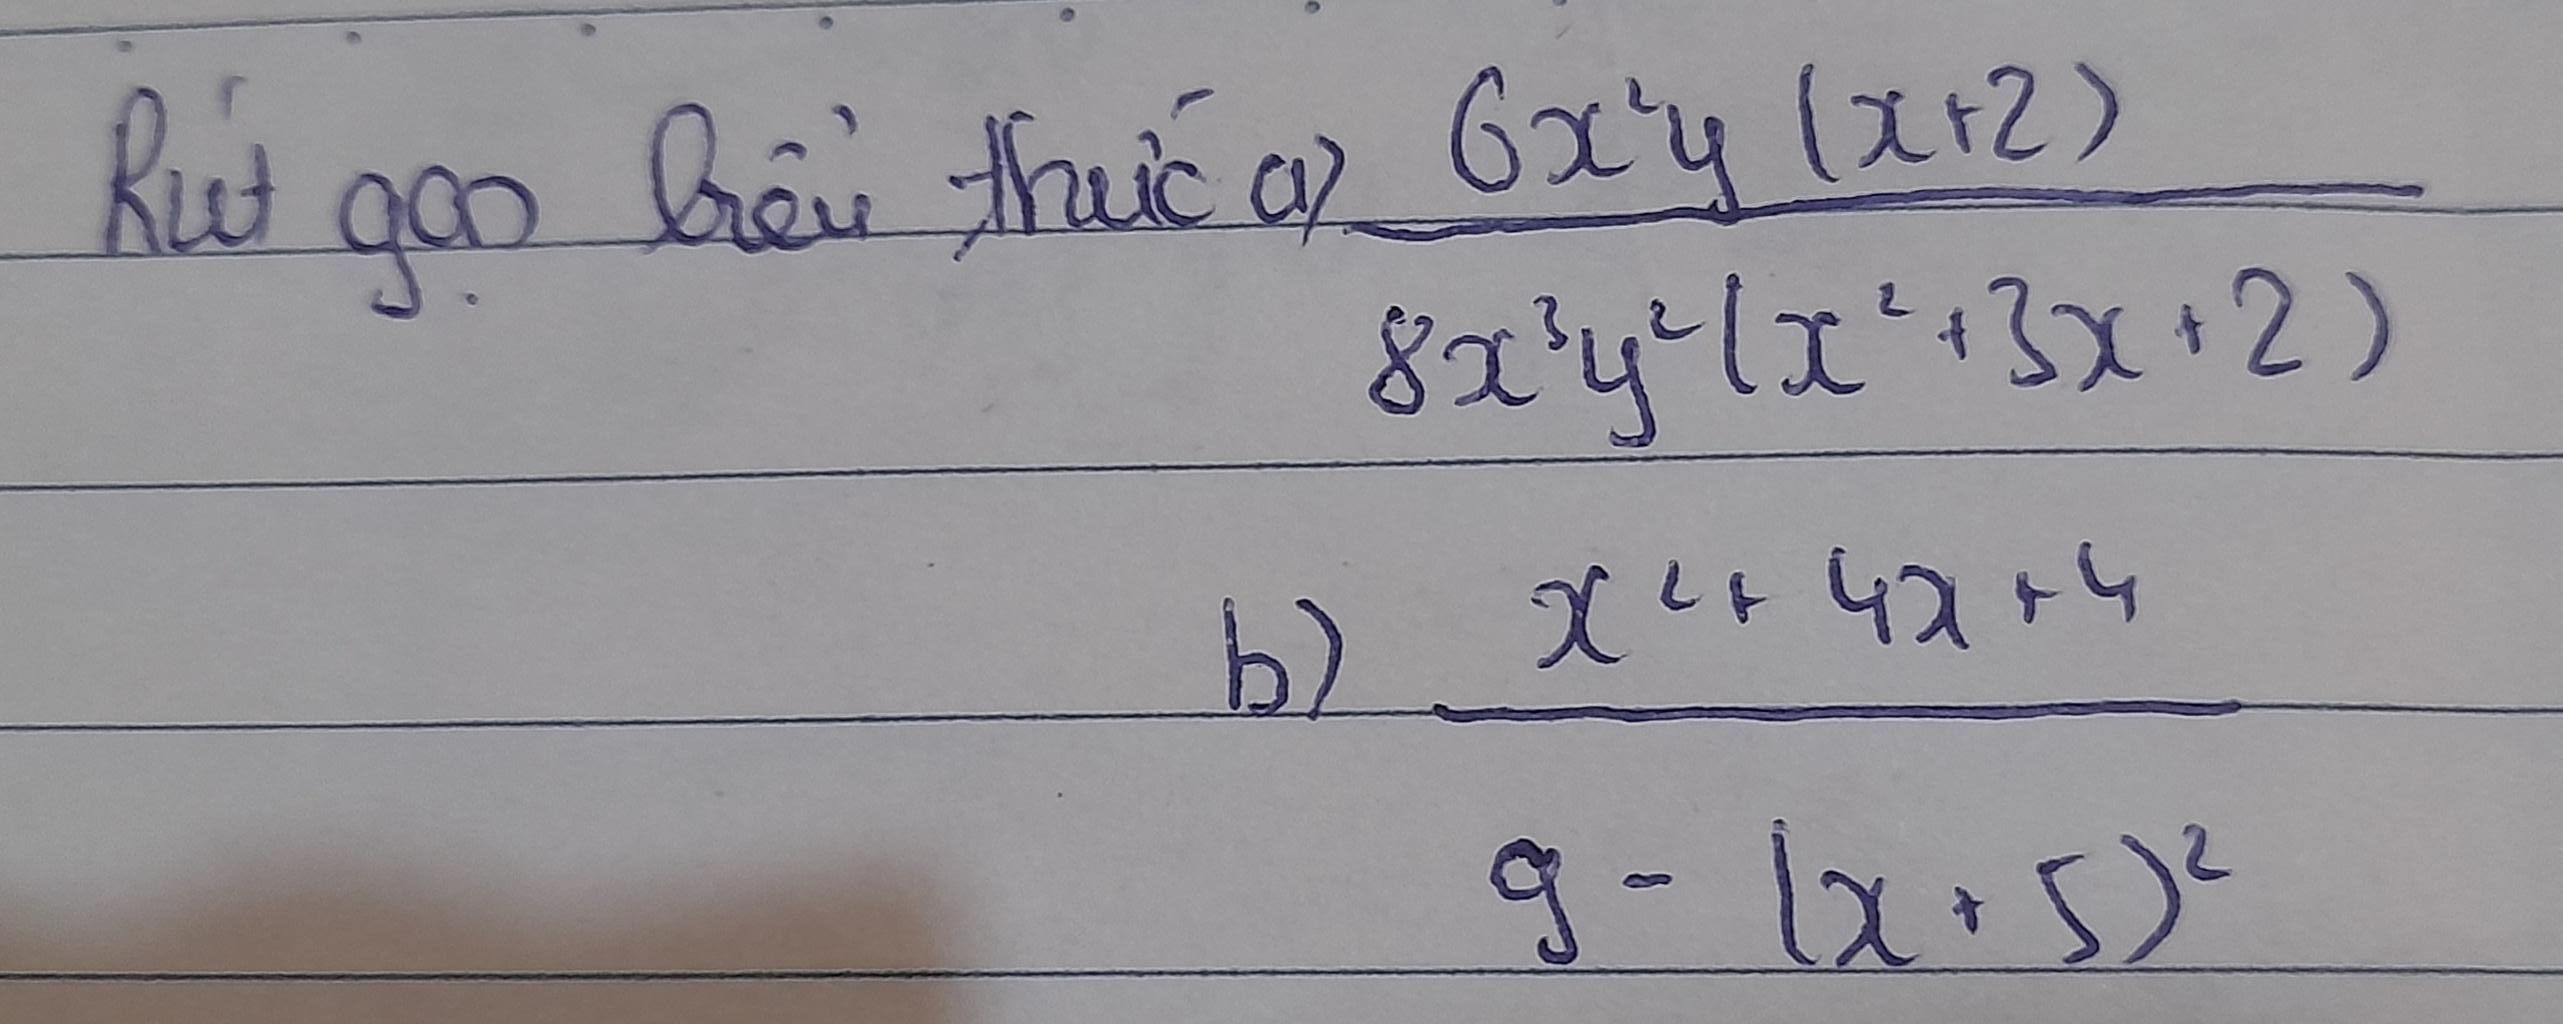 Rút gọn biểu thức a) 6x²y (x+2)
8x³y² (x² + 3x + 2)
b) x² + 4x + 4
9 - (x + 5)²